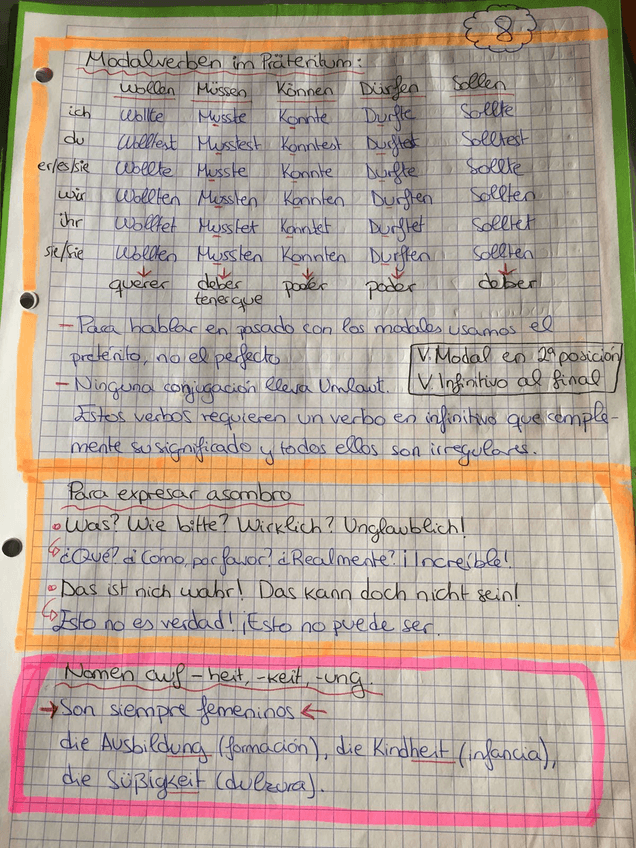 8
Modalverben im Präteritum:
Wollen Müssen Können Dürfen Sollen
ich Wollte Musste Konnte Durfte Sollte
du Wolltest Musstest Konntest Durftet Solltest
er/es/sie Wollte Musste Konnte Durfte Sollte
wir Wollten Mussten Konnten Durften Sollten
ihr Wolltet Musstet Konntet Durftet Solltet
sie/Sie Wollten Mussten Konnten Durften Sollten
querer deber poder poder deber
tenesque
- Para hablar en pasado con los modales usamos el
pretérito, no el perfecto
V. Modal en 2ª posición
- Ninguna conjugación lleva Umlaut.
V. Infinitivo al final
Estos verbos requieren un verbo en infinitivo que comple-
mente su significado y todos ellos son irregulares.
Para expresar asombro
Was? Wie bitte? Wirklich? Unglaublich!
¿Qué? ¿Como, por favor? ¿Realmente? ¡Increíble!
Das ist nich wahr! Das kann doch nicht sein!
Esto no es verdad! ¡Esto no puede ser.
Nomen auf -heit, -keit, -ung.
→ Son siempre femeninos ←
die Ausbildung (formación), die Kindheit (infancia),
die Süßigkeit (dulzura).